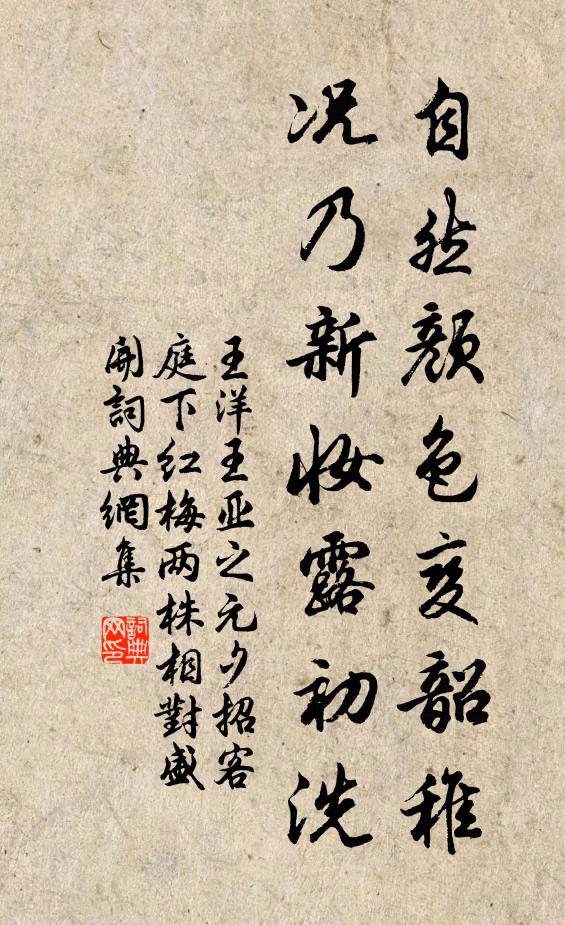 自然颜色变韶稚
况乃新妆露初洗
王洋王亚之元夕招客
庭下红梅两株相對盛
開詞典網集
詞典
网印